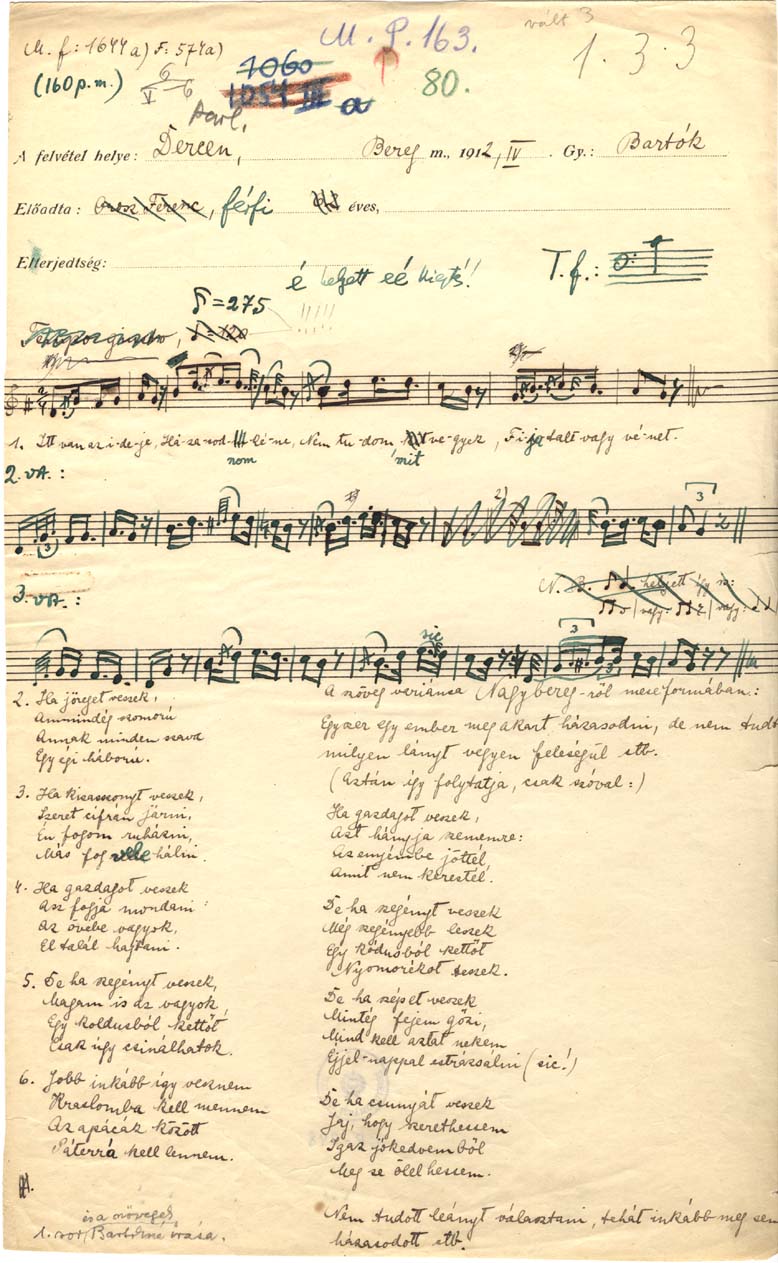 M. f: 1644 a) F: 574 a)
M. P. 163.
vált 3
1. 3. 3
(160 p.m.)
6
V 6
1060
1054 III a
80.
Parl.
A felvétel helye: Dercen, Bereg m., 1912, IV. Gy.: Bartók
Előadta: Orosz Ferenc, férfi éves,
Elterjedtség:
é helyett eé
T. f.:
Tempo giusto,
= 275
1. Itt van az i-de-je, Há-za-sod- lé-ne, Nem tu-dom ve-gyek, Fi-ja-talt vagy vé-net.
nom mit
2. VA.:
3
2)
3
3. VA.:
N. B. helyett így is:
vagy: vagy:
sic
3
2. Ha jöreget veszek,
Ammindég szomorú
Annak minden szavd
Egy égi háború.
3. Ha kisasszonyt veszek,
Szeret cifrán járni,
Én fogom ruházni,
Más fog vele hálni.
4. Ha gazdagot veszek
Asz fogja mondani:
Az övébe vagyok,
El talál hajtani.
5. De ha szegényt veszek,
Magam is az vagyok,
Egy koldusból kettőt
Csak úgy csinálhatok.
6. Jobb inkább így vesznem
Kraslomba kell mennem
Az apácák között
Páterrá kell lennem.
A szöveg veriánsa Nagybereg-ről mese formában:
Egyszer egy ember meg akart házasodni, de nem tudt
milyen lányt vegyen feleségül stb.
(Aztán így folytatja, csak szóval:)
Ha gazdagot veszek,
Aszt hányja szememre:
Az enyémbe jöttél,
Amit nem kerestél.
De ha szegényt veszek
Még szegényebb leszek
Egy kódusból kettőt
Nyomorékot teszek.
De ha szépet veszek
Mintég fejem gőzi,
Mind kell aztat nekem
Éjjel-nappal istrázsálni (sic!)
De ha csunyát veszek
Jaj, hogy szerethessem
Igaz jókedvemből
Meg se ölelhessem.
Nem tudott leányt választani, tehát inkább meg sem
házasodott stb.
és a szövegek
1. sor, Bartókné írása.